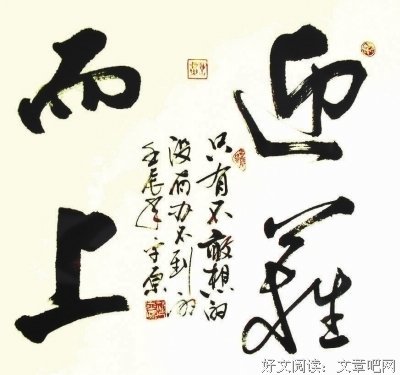 迎難
而上
只有不敢想的
没有办不到的
壬辰年
好文阅读：文章吧网